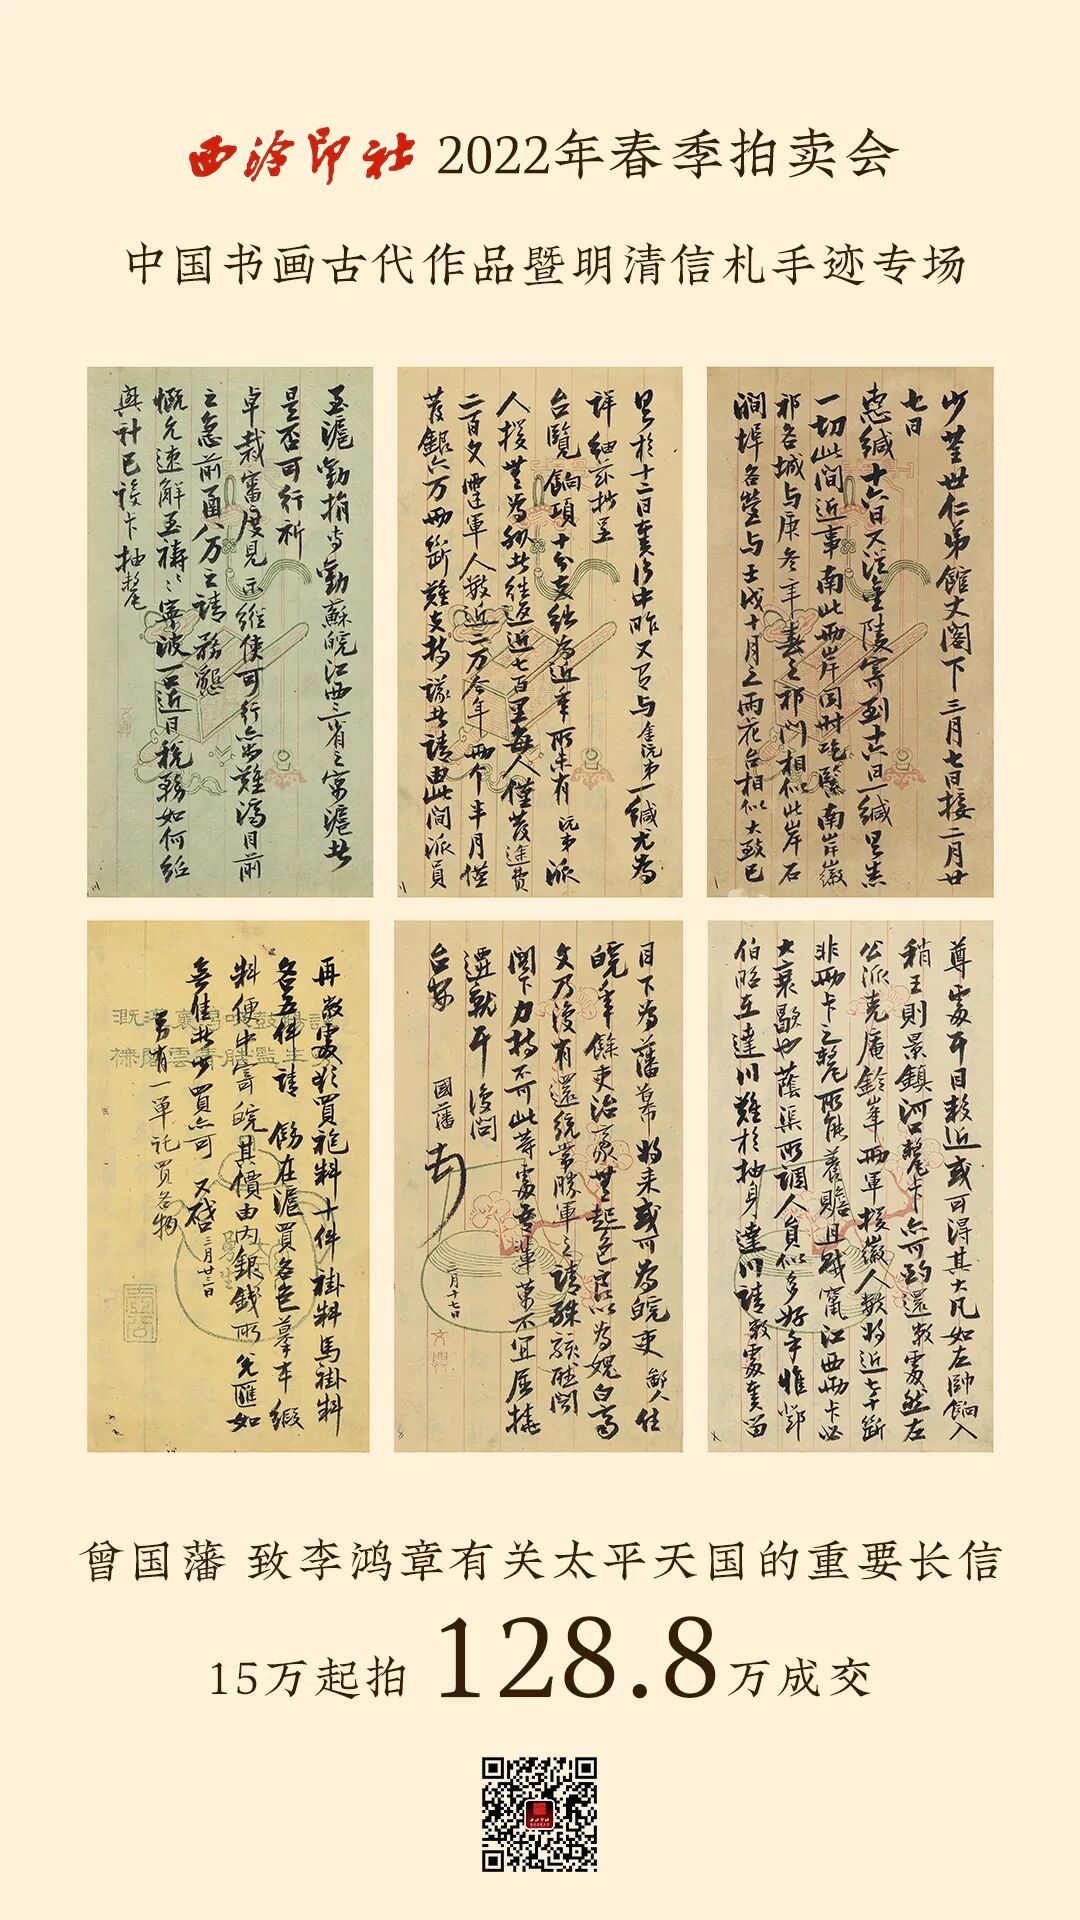 西泠印社 2022年春季拍卖会
中国书画古代作品暨明清信札手迹专场
少荃世仁弟馆丈阁下三月七日接二月廿
七日
惠缄十六日又从金陵寄到十六日一缄具悉
一切此间近事南北两岸同时吃紧南岸徽
祁各城与庚冬辛春之祁门相似北岸石
涧埠各营与壬戌十月之雨花台相似大致已
具于十二日奏片中昨又有与舍沅弟一缄尤为
详细兹抄呈
台览饷项十分支绌为近年所未有沅弟派
人援无为州此往返近七百里每人仅发途费
二百文霆军人数近二万今年两个半月仅
发银六万两断难支持谋此请由此间派员
至沪劝捐专劝苏皖江西三省之寓沪者
是否可行祈
卓裁审度见示纵使可行亦难济目前
之急前函八万之请务恳
慨允速解至祷至祷宁波一口近日税务如何绍
兴计已设卡抽厘
尊处耳目较近或可得其大凡如左帅饷入
稍王则景镇河口厘卡亦可酌还敝处然左
公派克庵钤峰两军援徽人数将近七千断
非两卡之厘所能养赡且贼窜江西两卡必
大衰歇也荫渠所调人员似多好手惟邓
伯昭在达川难于抽身达川请敝处奏留
目下为藩幕将来或可为皖吏鄙人任
皖年余吏治豪无起色良以为愧白高
文乃复有还统常胜军之请殊骇听闻
阁下力持不可此等处吾辈万不宜屈挠
迁就耳复问
台安
国藩顿
三月十七日
再敝处欲买袍料十件褂料马褂料
各五件请饬在沪买各色摹本缎
料便中寄皖其价由内银钱所兑汇如
无佳者少买亦可又启三月廿三日
另有一单托买各物
曾国藩 致李鸿章有关太平天国的重要长信
15万起拍 128.8万成交